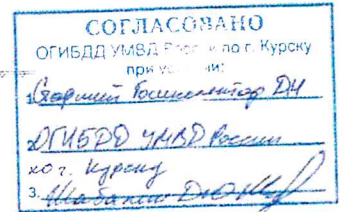 СОГЛАСОВАНО
ОГИБДД УМВД России по г. Курску
при условии:
1. Старший Госинспектор ДН
2. ОГИБДД УМВД России
по г. Курску
3.